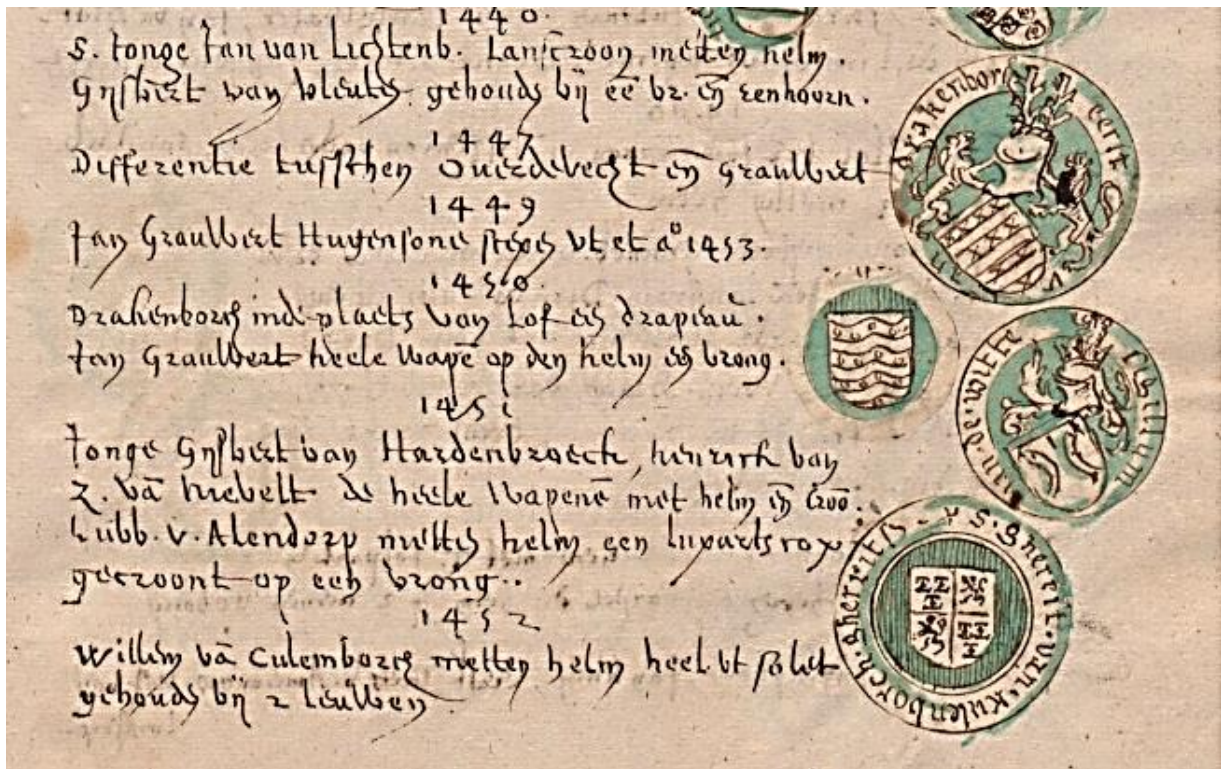 1440.
S. Jonge Jan van Lichtenb. Lanscroon metten helm.
Gijsbert van vleute gehoude bij eē vr. eñ eenhoorn.
1447
Differentie tusschen Ouerdevecht eñ Graulbert
1449
Jan Graulbert Hugensone ut et ao 1453.
1450.
Drakenborch inde plaets van Lof een drapeau.
Jan Graulbert heele wapē op den helm een vrong.
1451
Jonge Gijsbert van Hardenbroeck, henrick van
Z. vā Nievelt de heele wapenē met helm eñ croō.
Lubb. v. Alendorp metten helm een lupaerts
gecroont op een vrong..
1452
Willem vā Culemborch metten helm heel ut
gehoude bij 2 leuwen
van drakenborch
jan de witte sigillum
S. gherit van kulenborch gherritss